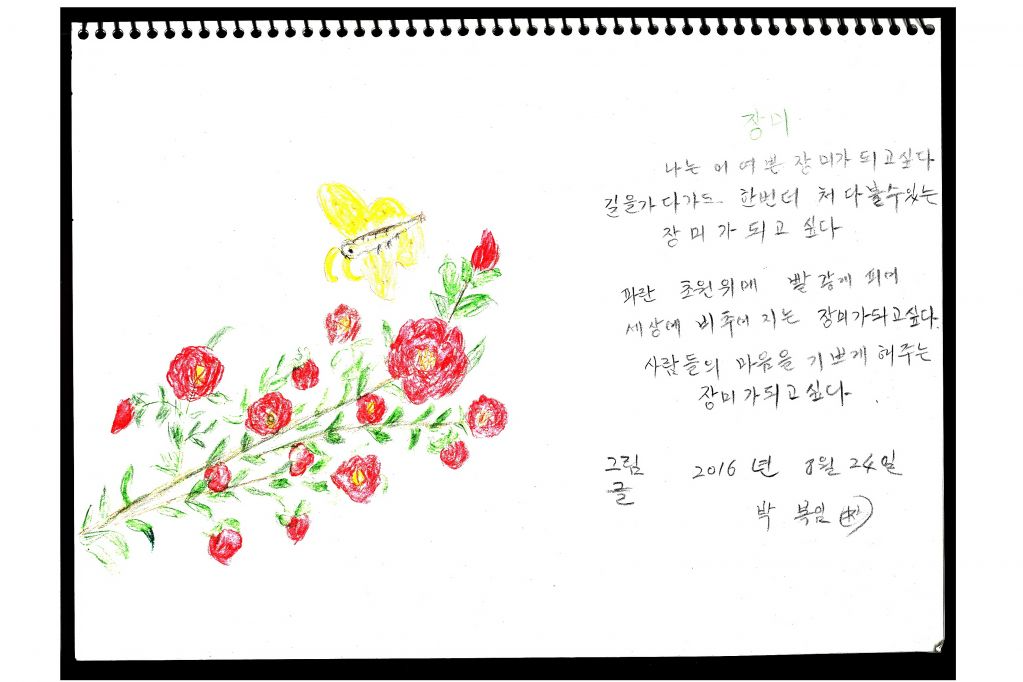 장미
나는 어여쁜 장미가 되고싶다
길을가다가도 한번더 처다볼수있는
장미가 되고 싶다
파란 초원위에 빨갛게 피여
세상에 비추어 지는 장미가되고싶다.
사람들의 마음을 기쁘게 해주는
장미가되고싶다.
그림
글
2016년 8월 24일
박복임